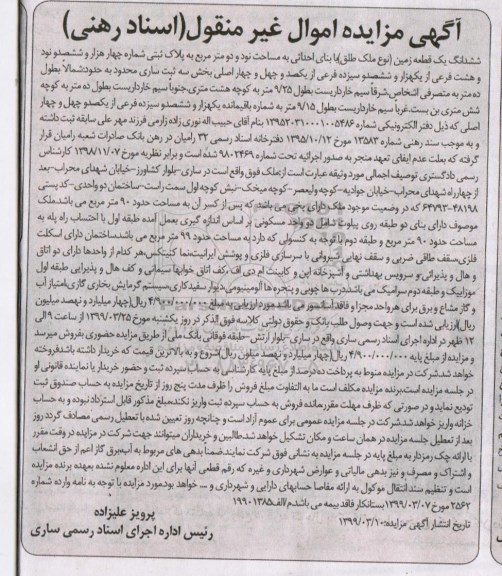 آگهی مزایده اموال غیر منقول(اسناد رهنی)
ششدانگ یک قطعه زمین (نوع ملک طلق)با بنای احداثی به مساحت نود و دو متر مربع به پلاک ثبتی شماره چهار هزار و ششصدو نود
و هشت فرعی از یکهزار و ششصدو سیزده فرعی از یکصد و چهل و چهار اصلی بخش سه ثبت ساری محدود به حدود:شمالاً بطول
ده متر به متصرفی اشخاص،شرقا سیم خارداریست بطول ۹/۲۵ متر به کوچه هشت متری،جنوباً سیم خارداریست بطول ده متر به کوچه
شش متری بن بست،غرباً سیم خارداریست بطول ۹/۱۵ متر به شماره باقیمانده یکهزار و ششصدو سیزده فرعی از یکصدو چهل و چهار
اصلی که ذیل دفتر الکترونیکی شماره ۱۳۹۵۲۰۳۱۰۰۰۱۰۰۵۴۸۶ بنام آقای حبیب اله نوری زاده زارمی فرزند مهر علی سابقه ثبت داشته
و به موجب سند رهنی شماره ۱۳۵۸۳ مورخ ۱۳۹۵/۱۰/۱۲ دفترخانه اسناد رسمی ۳۲ رامیان در رهن بانک صادرات شعبه رامیان قرار
گرفته که بعلت عدم ایفای تعهد منجر به صدور اجرائیه تحت شماره ۹۸۰۲۴۶۹ شده است و برابر نظریه مورخ ۱۳۹۸/۱۱/۰۷ کارشناس
رسمی دادگستری توصیف اجمالی مورد وثیقه عبارت است از:ملک فوق واقع است در ساری-بلوار کشاورز-خیابان شهدای محراب-بعد
از چهارراه شهدای محراب-خیابان جوادیه-کوچه ولیعصر-کوچه میخک-نبش کوچه اول سمت راست-ساختمان دو واحدی-کدپستی
۴۸۱۹۸-۶۴۷۹۳ که در وضعیت موجود ملک دارای پخی می باشد که پس از کسر آن به مساحت حدود ۹۰ متر مربع می باشد.ملک
موصوف دارای بنای دو طبقه روی پیلوت شامل دو واحد مسکونی بر اساس اندازه گیری بعمل آمده طبقه اول با احتساب راه پله به
مساحت حدود ۹۰ متر مربع و طبقه دوم با توجه به کنسولی که دارد به مساحت حدود ۹۹ متر مربع می باشد.ساختمان دارای اسکلت
فلزی،سقف طاقی ضربی و سقف نهایی شیروانی با سرسازی فلزی و پوشش ایرانیت،نما کلینیکس،هر کدام از واحدها دارای دو اتاق
و هال و پذیرایی و سرویس بهداشتی و آشپزخانه اپن و کابینت ام دی اف،کف اتاق خوابها سیمانی و کف هال و پذیرایی طبقه اول
موزاییک و طبقه دوم سرامیک می باشد.درب ها چوبی و پنجره ها آلومینیومی،دیوار سفیدکاری،سیستم گرمایش بخاری گازی،امتیاز آب
و گاز مشاع و برق برای هر واحد مجزا و فاقد آسانسور می باشد،مورد ارزیابی به مبلغ ۴/۹۰۰/۰۰۰/۰۰۰ ریال(چهار میلیارد و نهصد میلیون
ریال)ارزیابی شده است و جهت وصول طلب بانک و حقوق دولتی کلاسه فوق الذکر در روز یکشنبه مورخ ۱۳۹۹/۰۳/۲۵ از ساعت ۹ الی
۱۲ ظهر در اداره اجرای اسناد رسمی ساری واقع در ساری-بلوار ارتش-طبقه فوقانی بانک ملی از طریق مزایده حضوری بفروش میرسد
و مزایده از مبلغ پایه ۴/۹۰۰/۰۰۰/۰۰۰ ریال(چهار میلیارد و نهصد میلیون ریال)شروع و به بالاترین قیمت که خریدار داشته باشدفروخته
خواهد شد.شرکت در مزایده منوط به پرداخت ده درصد از مبلغ پایه کارشناسی به حساب سپرده ثبت و حضور خریدار یا نماینده قانونی او
در جلسه مزایده است.برنده مزایده مکلف است ما به التفاوت مبلغ فروش را ظرف مدت پنج روز از تاریخ مزایده به حساب صندوق ثبت
تودیع نماید و در صورتی که ظرف مهلت مقرر مانده فروش به حساب سپرده ثبت واریز نکند،مبلغ مذکور قابل استرداد نبوده و به حساب
خزانه واریز خواهد شد.شرکت در جلسه مزایده عمومی برای عموم آزاد است و چنانچه روز تعیین شده با تعطیل رسمی مصادف گردد روز
بعد از تعطیل جلسه مزایده در همان ساعت و مکان تشکیل خواهد شد.طالبین و خریداران میتوانند جهت شرکت در مزایده در وقت مقرر
با ارائه چک رمزدار به مبلغ پایه در جلسه مزایده به نشانی فوق شرکت نمایند.ضمنا بدهی های مربوط به آب،برق گاز اعم از حق انشعاب
و اشتراک و مصرف و نیز بدهی مالیاتی و عوارض شهرداری و غیره که رقم قطعی آنها برای این اداره معلوم نشده بعهده برنده مزایده
است و تنظیم سند انتقال موکول به ارائه مفاصا حسابهای دارایی و شهرداری و .... خواهد بود.مورد مزایده با توجه به نامه وارده شماره
۲۵۶۲ مورخ ۱۳۹۹/۰۳/۰۷ بستانکار فاقد بیمه می باشد.م/الف۱۹۹۰۱۳۸۵
تاریخ انتشار آگهی مزایده:۱۳۹۹/۰۳/۱۰
پرویز علیزاده
رئیس اداره اجرای اسناد رسمی ساری